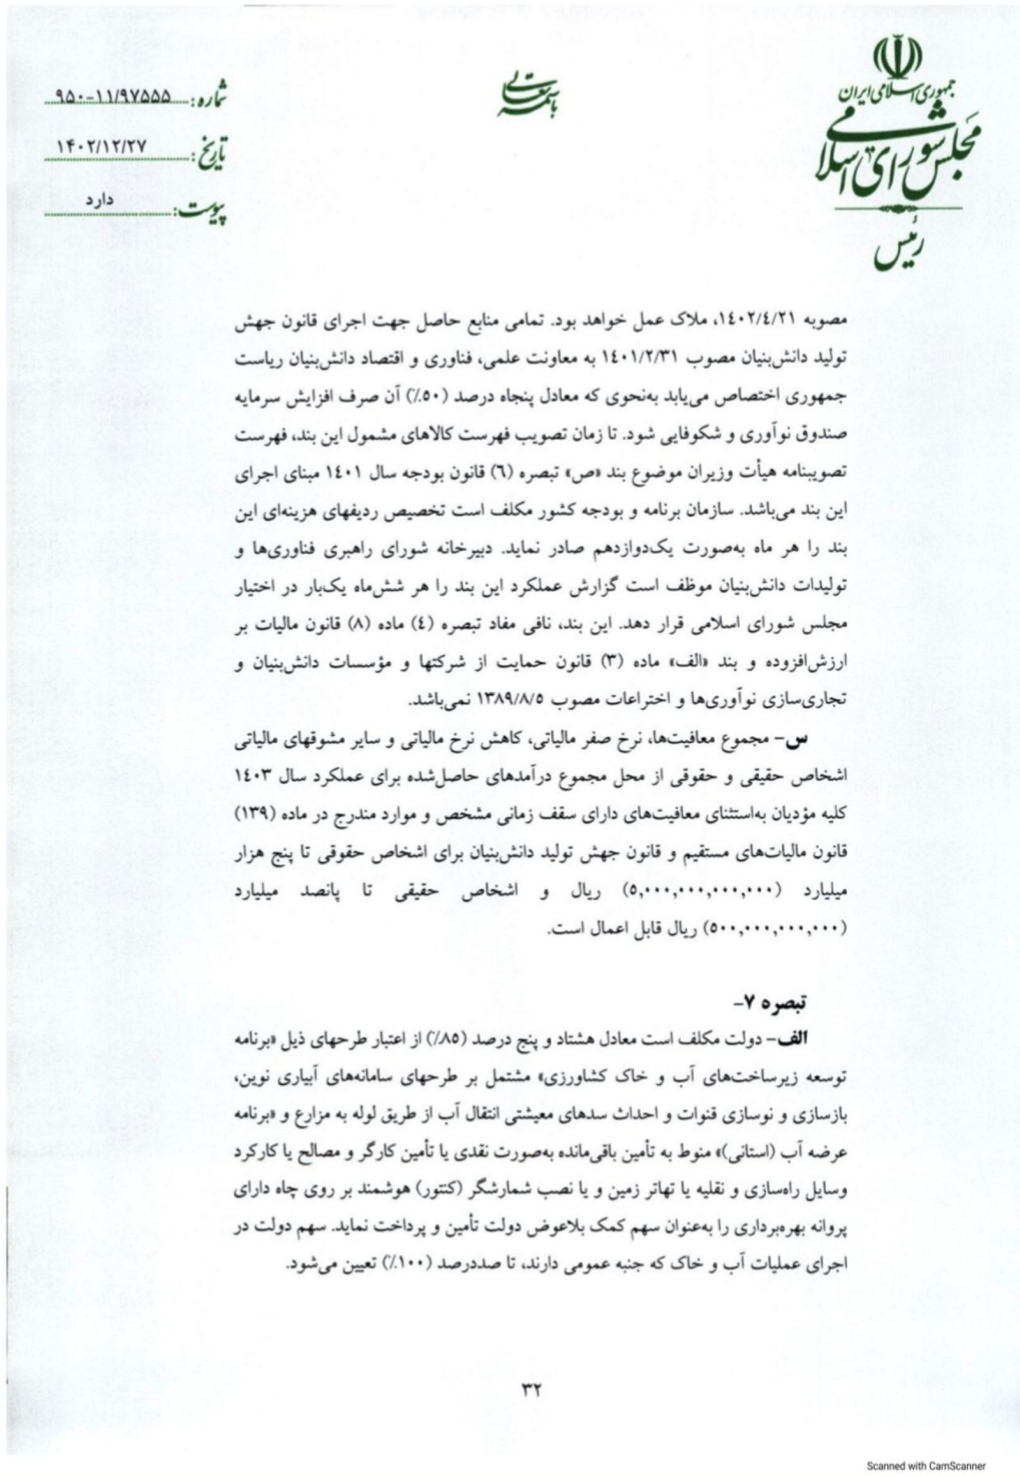 جمهوری اسلامی ایران
مجلس شورای اسلامی
رئیس
باسمه تعالی
شماره: ۹۵۰-۱۱/۹۷۵۵۵
تاریخ: ۱۴۰۲/۱۲/۲۷
پیوست: دارد
مصوبه ۱٤۰۲/٤/۲۱، ملاک عمل خواهد بود. تمامی منابع حاصل جهت اجرای قانون جهش
تولید دانش‌بنیان مصوب ۱٤۰۱/۲/۳۱ به معاونت علمی، فناوری و اقتصاد دانش‌بنیان ریاست
جمهوری اختصاص می‌یابد به‌نحوی که معادل پنجاه درصد (۵۰٪) آن صرف افزایش سرمایه
صندوق نوآوری و شکوفایی شود. تا زمان تصویب فهرست کالاهای مشمول این بند، فهرست
تصویبنامه هیأت وزیران موضوع بند «ص» تبصره (٦) قانون بودجه سال ۱٤۰۱ مبنای اجرای
این بند می‌باشد. سازمان برنامه و بودجه کشور مکلف است تخصیص ردیفهای هزینه‌ای این
بند را هر ماه به‌صورت یک‌دوازدهم صادر نماید. دبیرخانه شورای راهبری فناوری‌ها و
تولیدات دانش‌بنیان موظف است گزارش عملکرد این بند را هر شش‌ماه یک‌بار در اختیار
مجلس شورای اسلامی قرار دهد. این بند، نافی مفاد تبصره (٤) ماده (۸) قانون مالیات بر
ارزش‌افزوده و بند «الف» ماده (۳) قانون حمایت از شرکتها و مؤسسات دانش‌بنیان و
تجاری‌سازی نوآوری‌ها و اختراعات مصوب ۱۳۸۹/۸/۵ نمی‌باشد.
س- مجموع معافیت‌ها، نرخ صفر مالیاتی، کاهش نرخ مالیاتی و سایر مشوقهای مالیاتی
اشخاص حقیقی و حقوقی از محل مجموع درآمدهای حاصل‌شده برای عملکرد سال ۱٤۰۳
کلیه مؤدیان به‌استثنای معافیت‌های دارای سقف زمانی مشخص و موارد مندرج در ماده (۱۳۹)
قانون مالیات‌های مستقیم و قانون جهش تولید دانش‌بنیان برای اشخاص حقوقی تا پنج هزار
میلیارد (۵,۰۰۰,۰۰۰,۰۰۰,۰۰۰) ریال و اشخاص حقیقی تا پانصد میلیارد
(۵۰۰,۰۰۰,۰۰۰,۰۰۰) ریال قابل اعمال است.
تبصره ۷-
الف- دولت مکلف است معادل هشتاد و پنج درصد (۸۵٪) از اعتبار طرحهای ذیل «برنامه
توسعه زیرساخت‌های آب و خاک کشاورزی» مشتمل بر طرحهای سامانه‌های آبیاری نوین،
بازسازی و نوسازی قنوات و احداث سدهای معیشتی انتقال آب از طریق لوله به مزارع و «برنامه
عرضه آب (استانی)» منوط به تأمین باقی‌مانده به‌صورت نقدی یا تأمین کارگر و مصالح یا کارکرد
وسایل راه‌سازی و نقلیه یا تهاتر زمین و یا نصب شمارشگر (کنتور) هوشمند بر روی چاه دارای
پروانه بهره‌برداری را به‌عنوان سهم کمک بلاعوض دولت تأمین و پرداخت نماید. سهم دولت در
اجرای عملیات آب و خاک که جنبه عمومی دارند، تا صددرصد (۱۰۰٪) تعیین می‌شود.
۳۲
Scanned with CamScanner